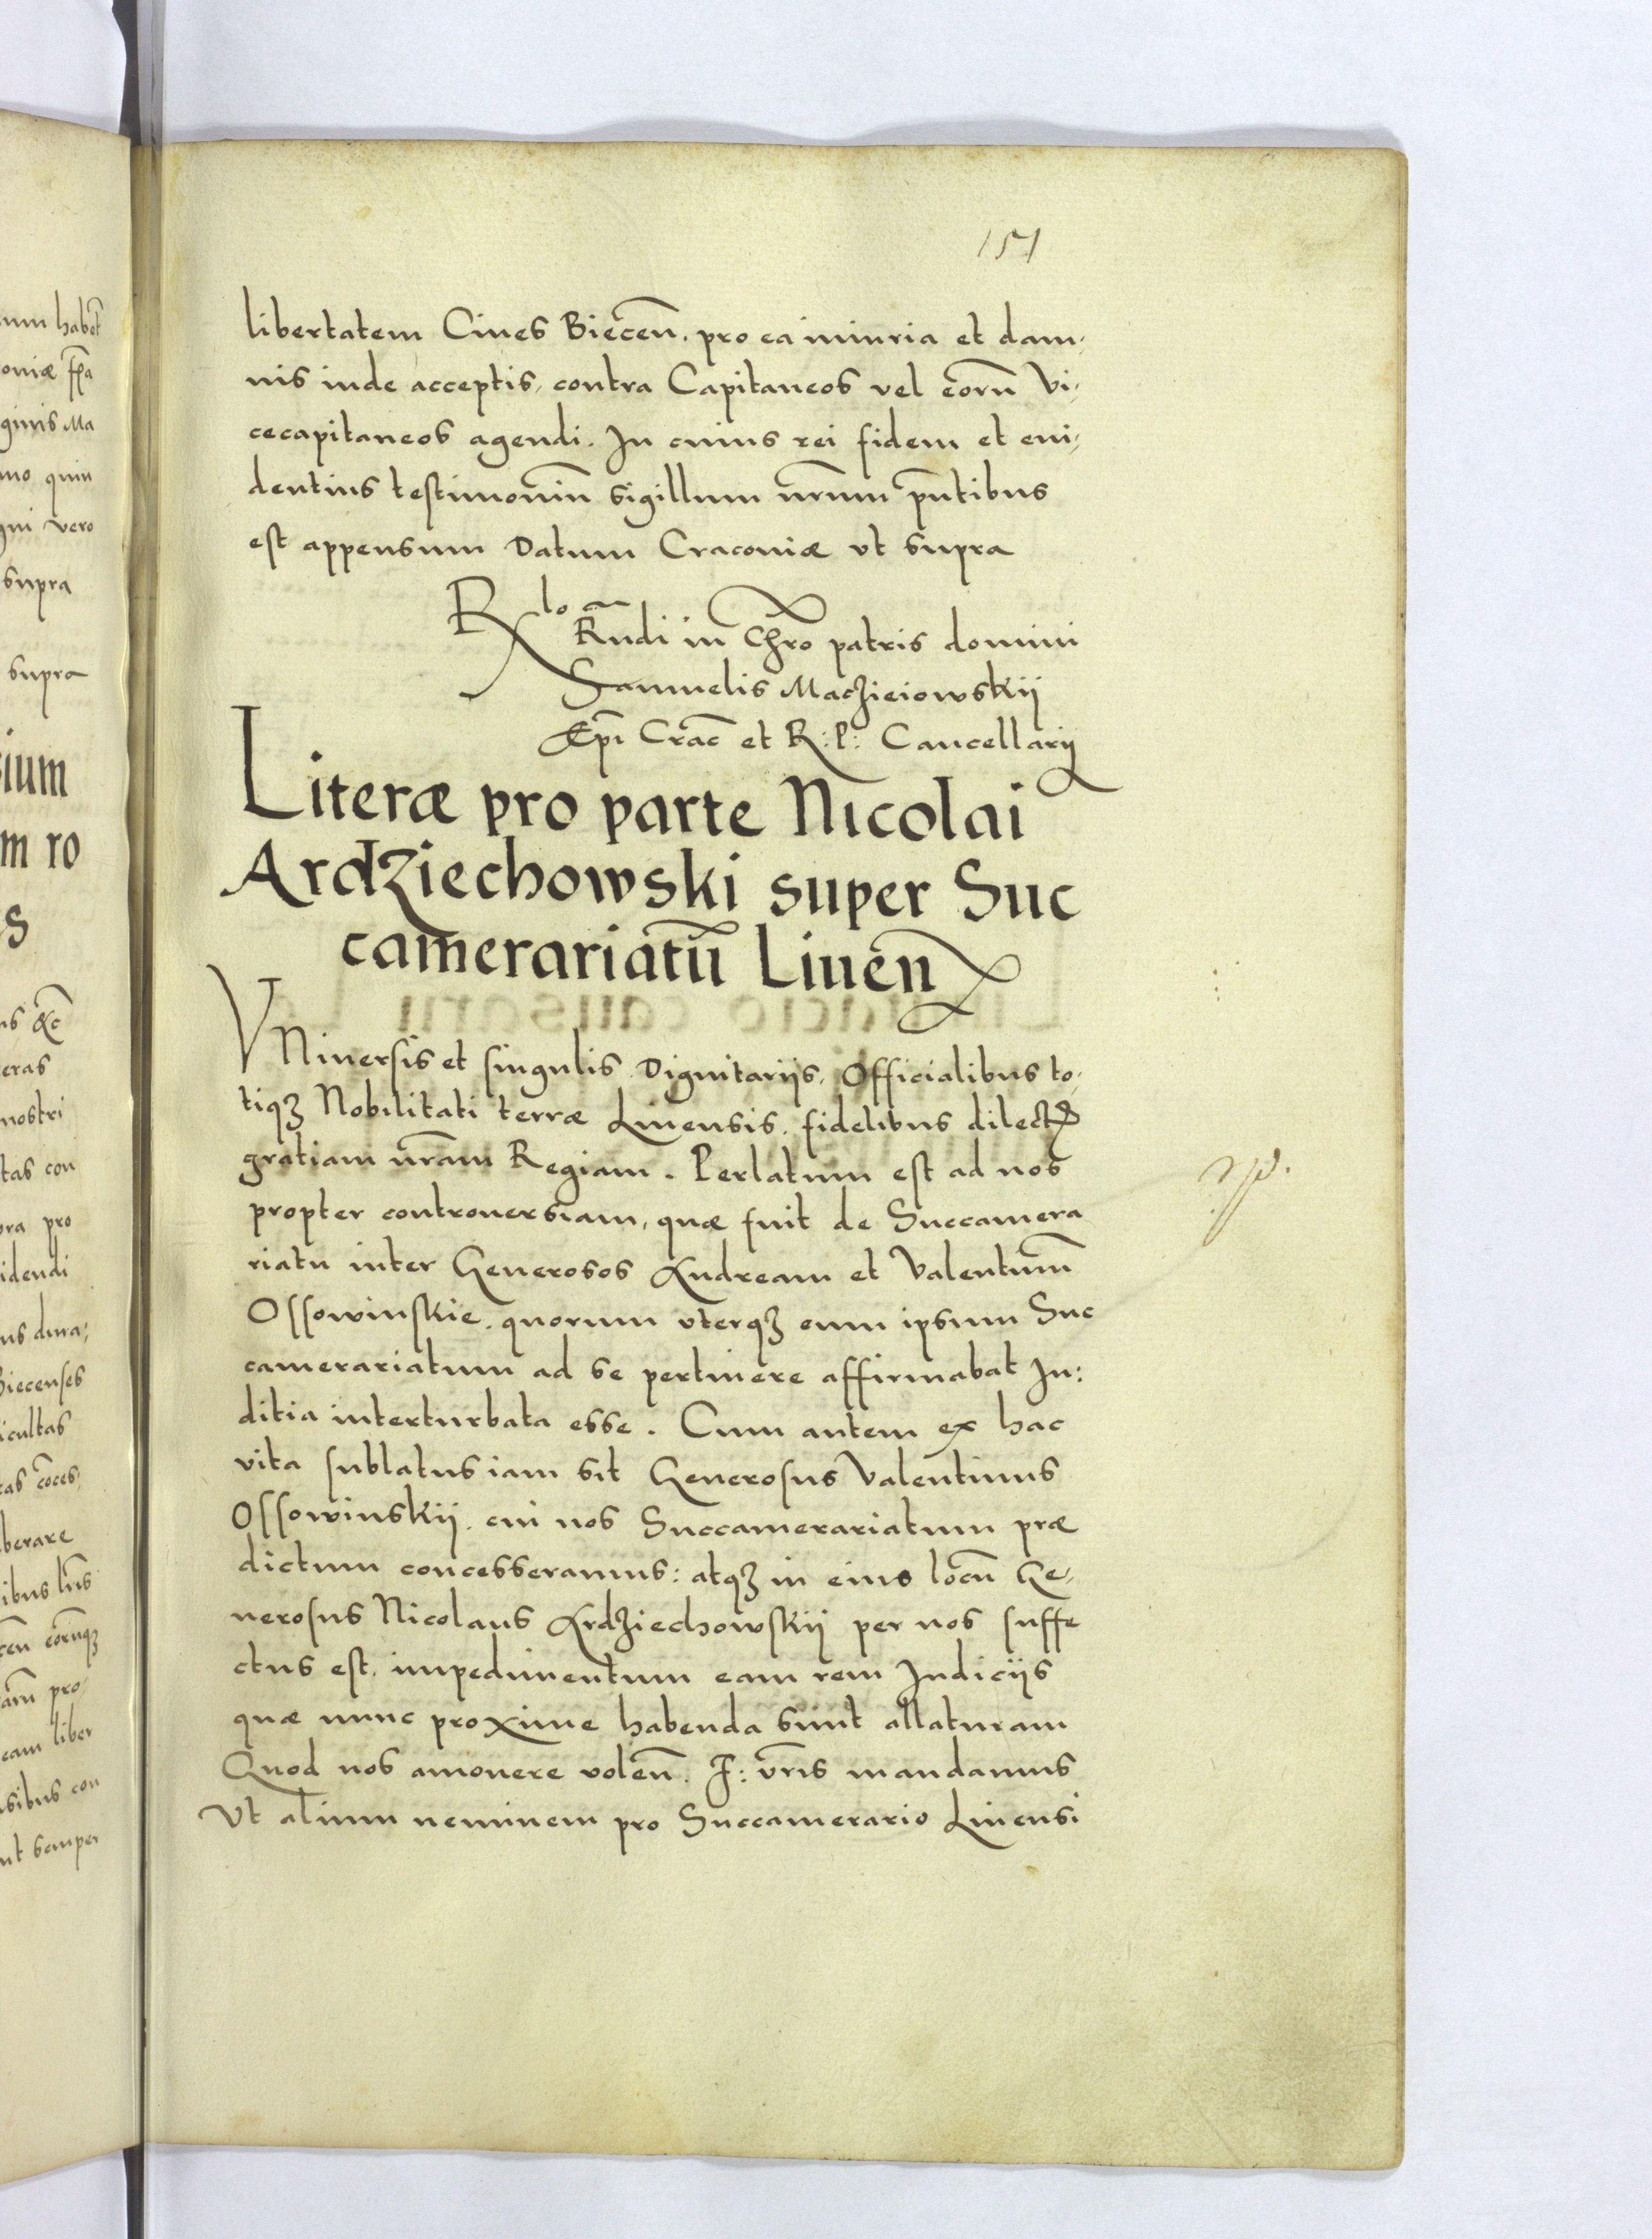 151
libertatem Ciues Biecen̄. pro ea iniuria et dam,
nis inde acceptis, contra Capitaneos vel eorū Vi,
cecapitaneos agendi. In cuius rei fidem et eui,
dentius testimoniū sigillum nr̄um p̄ntibus
est appensum Datum Cracouiæ vt supra
R̄lo
Rndi in Chr̄o patris domini
Samuelis Maczieiowskij
Ep̄i Crac̄ et R: P: Cancellarij
Literæ pro parte Nicolai
Ardziechowski super Suc
camerariatū Liuen̄
VNiuersis et singulis Dignitarijs, Officialibus to,
tiqꝫ Nobilitati terræ Liuensis. fidelibus dilectꝭ
gratiam nr̄am Regiam. Perlatum est ad nos
propter controuersiam, quæ fuit de Succamera
riatu inter Generosos Andream et Valentinū
Ossowinskie. quorum vterqꝫ eum ipsum Suc
camerariatum ad se pertinere affirmabat Iu:
ditia interturbata esse. Cum autem ex hac
vita sublatus iam sit Generosus Valentinus
Ossowinskij. cui nos Succamerariatum præ
dictum concesseramus: atqꝫ in eius locū Ge,
nerosus Nicolaus Ardziechowskij per nos suffe
ctus est. impedimentum eam rem Iudicijs
quæ nunc proxime habenda sunt allaturam
Quod nos amouere volen̄. F: vr̄is mandamus
Vt alium neminem pro Succamerario Liuensi